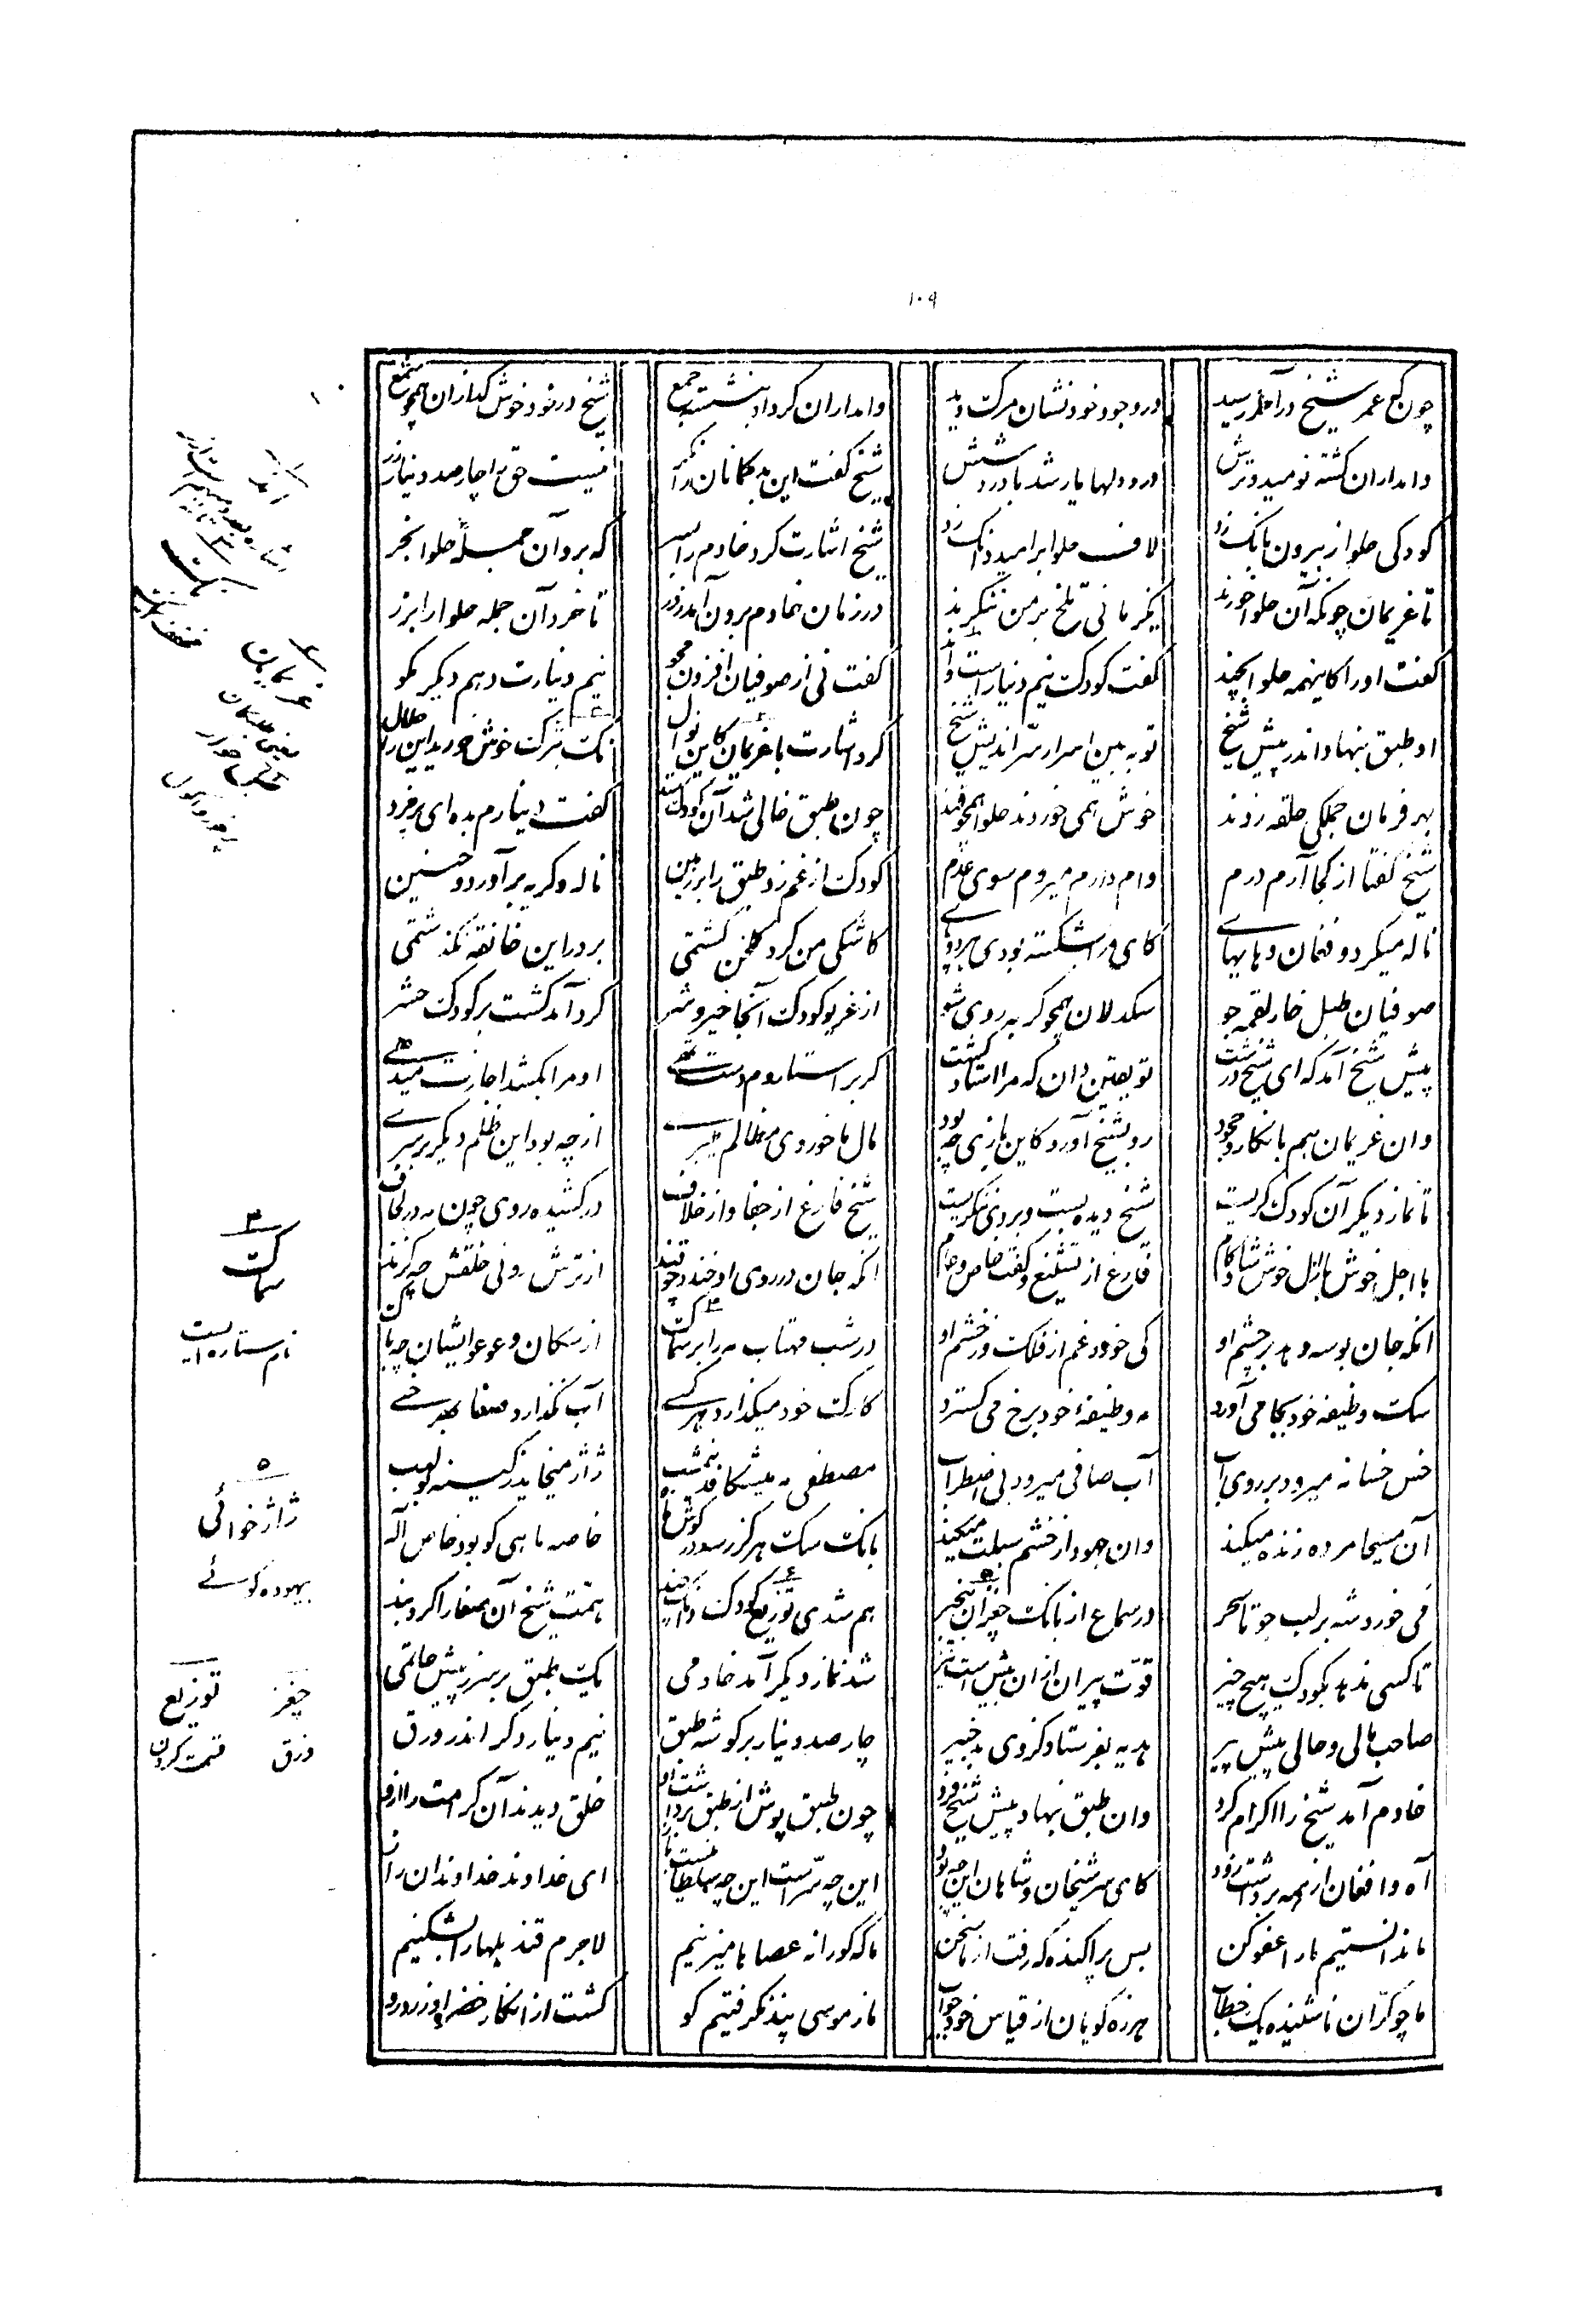 ۱۰۹
چون که عمر شیخ در آخر رسید در وجود خود نشان مرگ دید وامداران گرد او بنشسته جمع شیخ در خود خوش گدازان همچو شمع
وامداران گشته نومید و ترش درد دلها یار شد با درد شش شیخ گفت این بدگمانان را نگر نیست حق را چارصد دینار زر
کودکی حلوا ز بیرون بانگ زد لاف حلوا بر امید دانگ زد شیخ اشارت کرد خادم را بسر که برو آن جمله حلوا بخر
تا غریمان چونکه آن حلوا خورند یکزمانی تلخ بر من ننگرند در زمان خادم برون آمد ز در تا خرد آن جمله حلوا را بزر
گفت او را کاینهمه حلوا بچند گفت کودک نیم دینار است و اند گفت نی از صوفیان افزون مجو نیم دینارت دهم دیگر مگو
او طبق بنهاد اندر پیش شیخ تو ببین اسرار سر اندیش شیخ کرد اشارت با غریمان کاین نوال نک تبرک خوش خورید این را حلال
بهر فرمان جملگی حلقه زدند خوش همی خوردند حلوا همچو قند چون طبق خالی شد آن کودک ستد گفت دینارم بده ای پر خرد
شیخ گفتا از کجا آرم درم وام دارم میروم سوی عدم کودک از غم زد طبق را بر زمین ناله و گریه برآورد و حنین
ناله میکرد و فغان و هایهای کای مرا بشکسته بودی هر دو پای کاشکی من گرد گلخن گشتمی بر در این خانقه نگذشتمی
صوفیان طبل خوار لقمه جو سگدلان همچو گربه روی شو از غریو کودک آنجا خیر و شر گرد آمد گشت بر کودک حشر
پیش شیخ آمد که ای شیخ درشت تو یقین دان که مرا استاد کشت گر بر استا روم دست تهی او مرا بکشد اجازت میدهی
وان غریمان هم بانکار و جحود رو بشیخ آورد کاین بازی چه بود مال ما خوردی مظالم میبری از چه بود این ظلم دیگر بر سری
تا نماز دیگر آن کودک گریست شیخ دیده بست و بروی ننگریست شیخ فارغ از جفا و از خلاف در کشیده روی چون مه در لحاف
با اجل خوش با ازل خوش شادکام فارغ از تشنیع و گفت خاص و عام آنکه جان در روی او خندد چو قند از ترش روئی خلقش چه گزند
آنکه جان بوسه دهد بر چشم او کی خورد غم از فلک وز خشم او در شب مهتاب مه را بر سماک از سگان و عوعو ایشان چه باک
سگ وظیفه خود بجا می آورد مه وظیفهٔ خود برخ می گسترد کارک خود میگذارد هر کسی آب نگذارد صفا بهر خسی
خس خسانه میرود بر روی آب آب صافی میرود بی اضطراب مصطفی مه میشکافد نیمشب ژاژ میخاید ز کینه بولهب
آن مسیحا مرده زنده میکند وان جهود از خشم سبلت میکند بانگ سگ هرگز رسد در گوش ماه خاصه ماهی کو بود خاص اله
می خورد شه بر لب جو تا سحر در سماع از بانگ چغزان بیخبر هم شدی توزیع کودک دانگ چند همت شیخ آن سخا را کرد بند
تا کسی ندهد بکودک هیچ چیز قوت پیران از ان بیش است نیز شد نماز دیگر آمد خادمی یک طبق بر سر ز پیش حاتمی
صاحب مالی و حالی پیش پیر هدیه بفرستاد کز وی بد خبیر چارصد دینار بر گوشه طبق نیم دینار دگر اندر ورق
خادم آمد شیخ را اکرام کرد وان طبق بنهاد پیش شیخ فرد چون طبق پوش از طبق برداشت او خلق دیدند آن کرامت را ازو
آه و افغان از همه برخاست زود کای سر شیخان و شاهان این چه بود این چه سر است این چه سلطانیست باز ای خداوند خداوندان راز
ما ندانستیم ما را عفو کن بس پراکنده که رفت از ما سخن ما که کورانه عصاها میزنیم لاجرم قندیلها را بشکنیم
ما چو کران ناشنیده یک خطاب هرزه گویان از قیاس خود جواب ما ز موسی پند نگرفتیم کو گشت از انکار خضر او زرد رو
۲
غریمان
۳
سماک
نام ستاره ایست
۵
ژاژ خوائی
بیهوده گوئی
چغز
وزق
توزیع
قسمت کردن